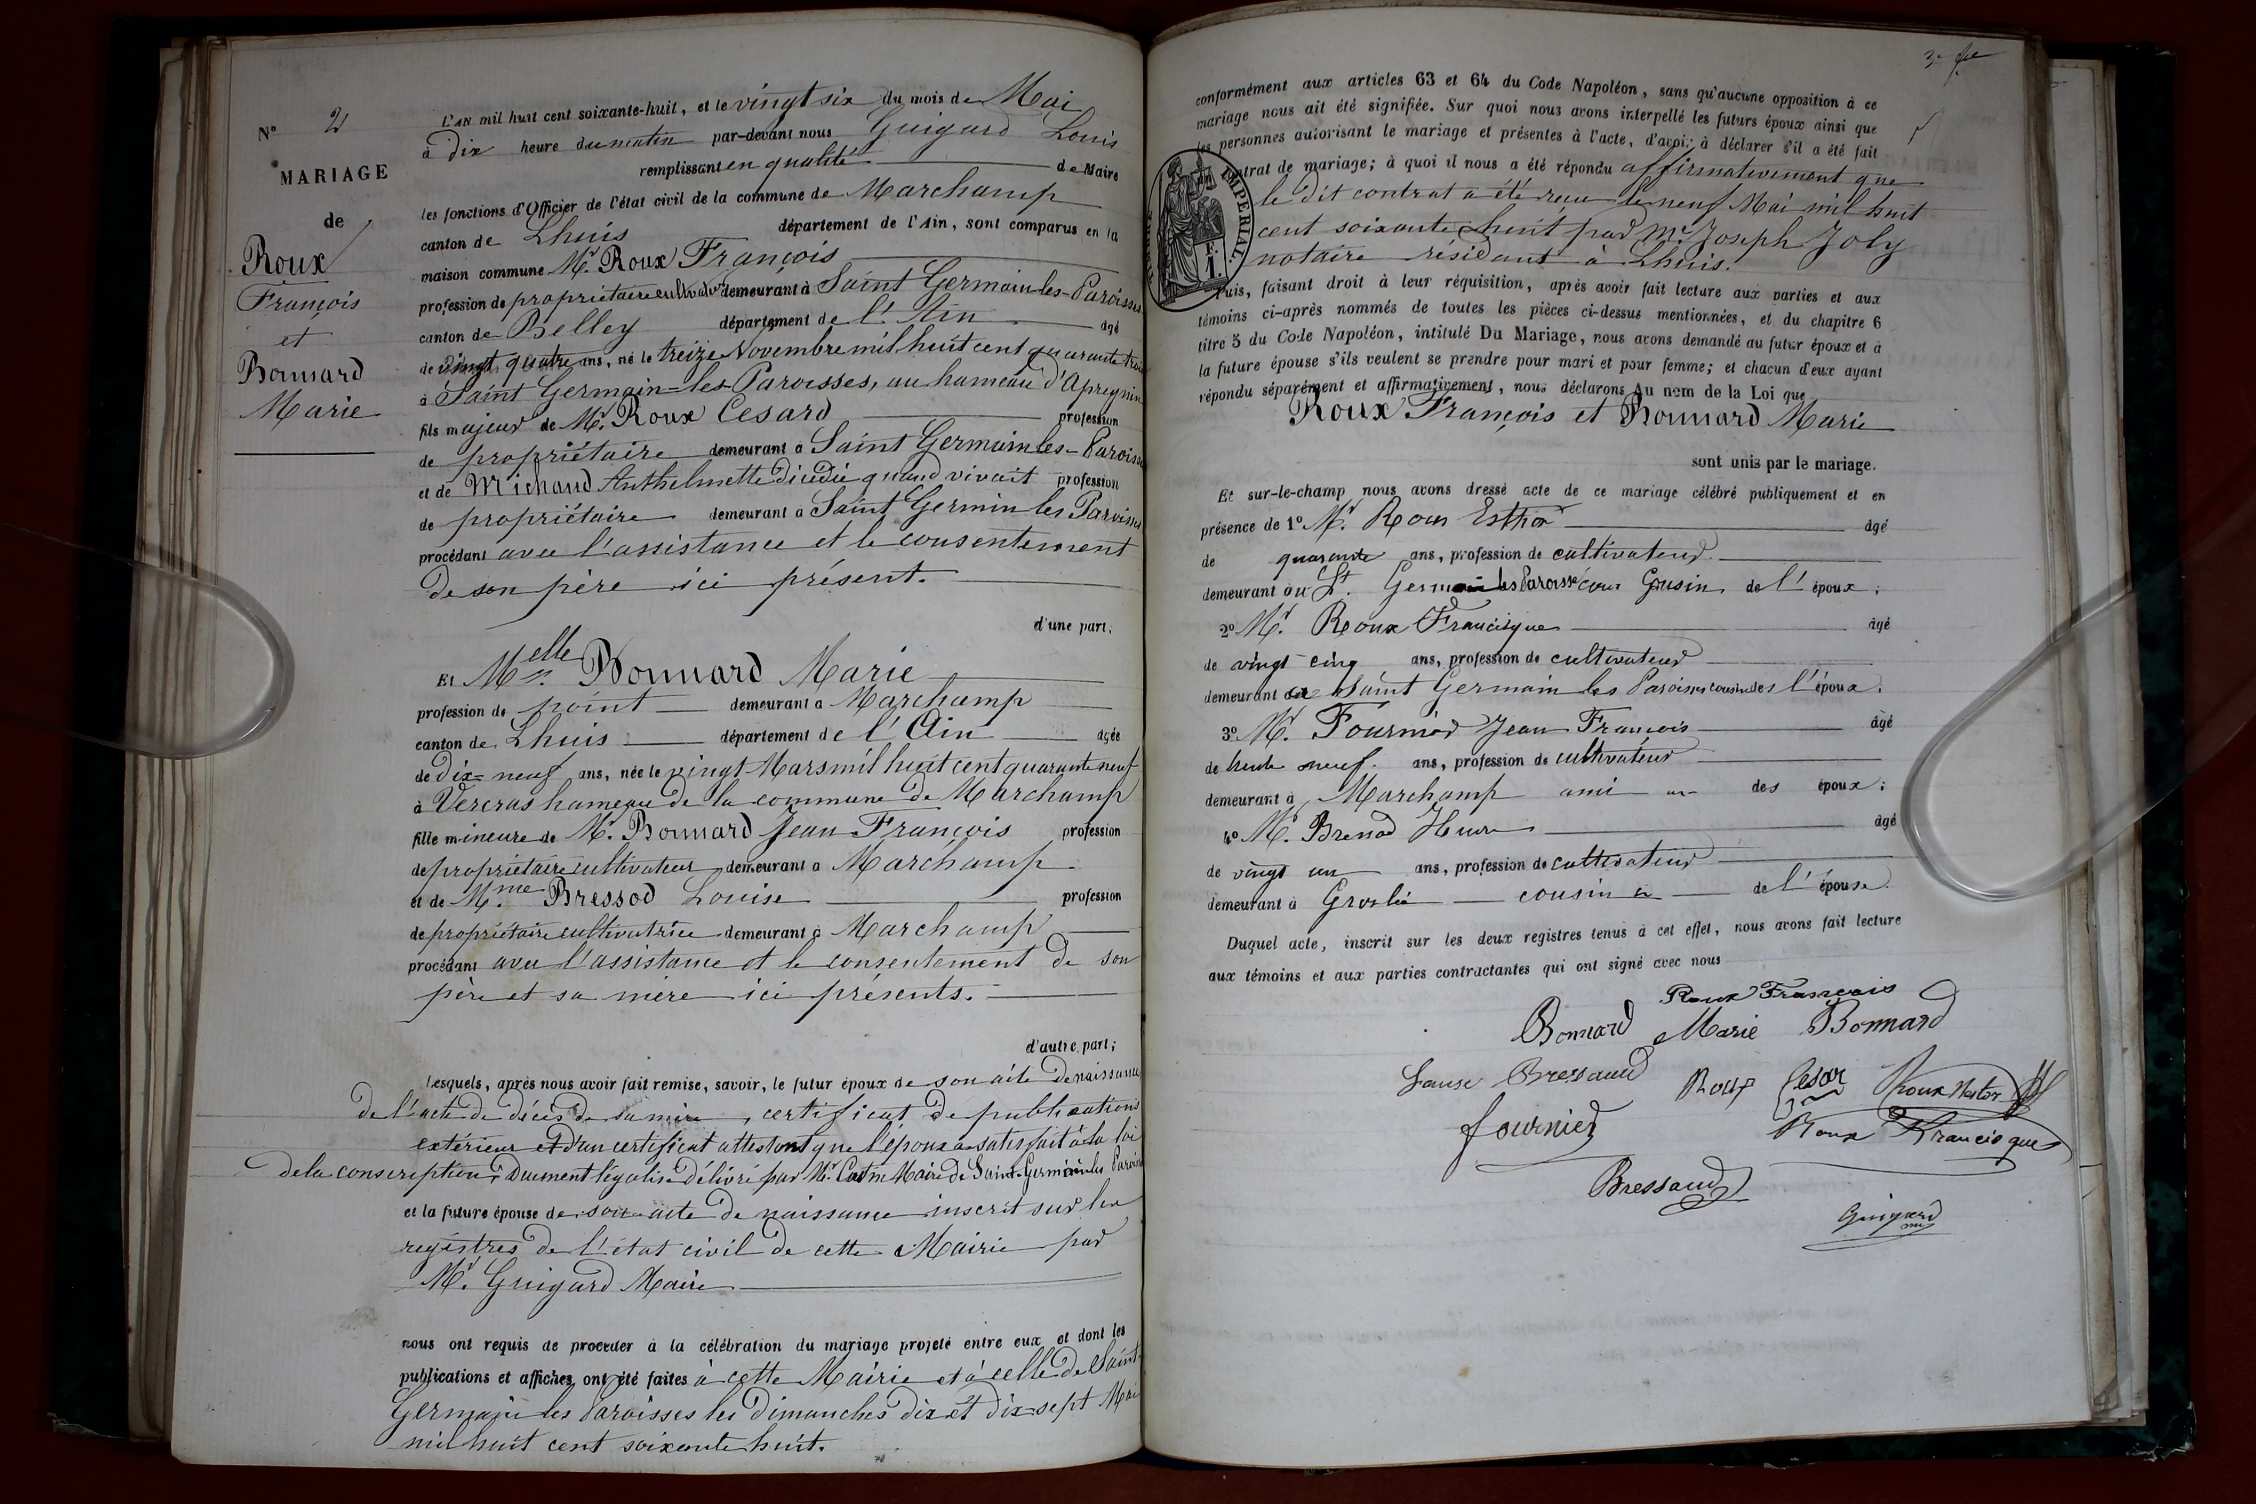 N° 2
MARIAGE
de
Roux
François
et
Bonnard
Marie
L'AN mil huit cent soixante-huit, et le vingt six du mois de Mai
à dix heure du matin par-devant nous Guigard Louis
remplissant en qualité de Maire
les fonctions d'Officier de l'état civil de la commune de Marchamp
canton de Lhuis département de l'Ain, sont comparus en la
maison commune Mr. Roux François
profession de propriétaire cultivateur demeurant à Saint Germain-les-Paroisses
canton de Belley département de l'Ain âgé
de vingt quatre ans, né le treize Novembre mil huit cent quarante trois
à Saint Germain-les-Paroisses, au hameau d'Apregnin
fils majeur de Mr. Roux Cesard profession
de propriétaire demeurant à Saint Germain les-Paroisses
et de Michaud Anthelmette décédée quand vivait profession
de propriétaire demeurant à Saint Germin les Paroisses
procédant avec l'assistance et le consentement
de son père ici présent.
d'une part;
Et Melle Bonnard Marie
profession de point demeurant à Marchamp
canton de Lhuis département de l'Ain âgée
de dix-neuf ans, née le vingt Mars mil huit cent quarante neuf
à Vercras hameau de la commune de Marchamp
fille mineure de Mr. Bonnard Jean François profession
de propriétaire cultivateur demeurant à Marchamp
et de Mme Bressod Louise profession
de propriétaire cultivatrice demeurant à Marchamp
procédant avec l'assistance et le consentement de son
père et sa mère ici présents.
d'autre part;
Lesquels, après nous avoir fait remise, savoir, le futur époux de son acte de naissance
de l'acte de décès de sa mère, certificat de publications
extérieur et d'un certificat attestant que l'époux a satisfait à la loi
de la conscription; Duement légalisé délivré par Mr. Maire de Saint-Germain les Paroisses
et la future épouse de son acte de naissance inscrit sur les
registres de l'état civil de cette Mairie par
Mr. Guigard Maire
nous ont requis de procéder à la célébration du mariage projeté entre eux et dont les
publications et affiches ont été faites à cette Mairie et à celle de Saint
Germain les Paroisses les dimanches dix et dix-sept Mai
mil huit cent soixante huit.
conformément aux articles 63 et 64 du Code Napoléon, sans qu'aucune opposition à ce
mariage nous ait été signifiée. Sur quoi nous avons interpellé les futurs époux ainsi que
les personnes autorisant le mariage et présentes à l'acte, d'avoir à déclarer s'il a été fait
trat de mariage; à quoi il nous a été répondu affirmativement que
le dit contrat a été reçu le neuf Mai mil huit
cent soixante huit par Me Joseph Joly
notaire résidant à Lhuis.
IMPERIAL.
F.
1.
Puis, faisant droit à leur réquisition, après avoir fait lecture aux parties et aux
témoins ci-après nommés de toutes les pièces ci-dessus mentionnées, et du chapitre 6
titre 5 du Code Napoléon, intitulé Du Mariage, nous avons demandé au futur époux et à
la future épouse s'ils veulent se prendre pour mari et pour femme; et chacun d'eux ayant
répondu séparément et affirmativement, nous déclarons Au nom de la Loi que
Roux François et Bonnard Marie
sont unis par le mariage.
Et sur-le-champ nous avons dressé acte de ce mariage célébré publiquement et en
présence de 1° Mr. Roux âgé
de quarante ans, profession de cultivateur
demeurant au St. Germain les Paroisse cousin de l'époux;
2° Mr. Roux Francisque âgé
de vingt cinq ans, profession de cultivateur
demeurant à Saint Germain les Paroisses cousin de l'époux.
3° Mr. Fournier Jean François âgé
de trente neuf. ans, profession de cultivateur
demeurant à Marchamp ami des époux;
4° Mr. âgé
de vingt un ans, profession de cultivateur
demeurant à Groslée cousin de l'épouse
Duquel acte, inscrit sur les deux registres tenus à cet effet, nous avons fait lecture
aux témoins et aux parties contractantes qui ont signé avec nous
Roux François
Bonnard Marie Bonnard
Bressaud Roux Cesar Roux
fournier Roux Francisque
Bressaud
Guigard